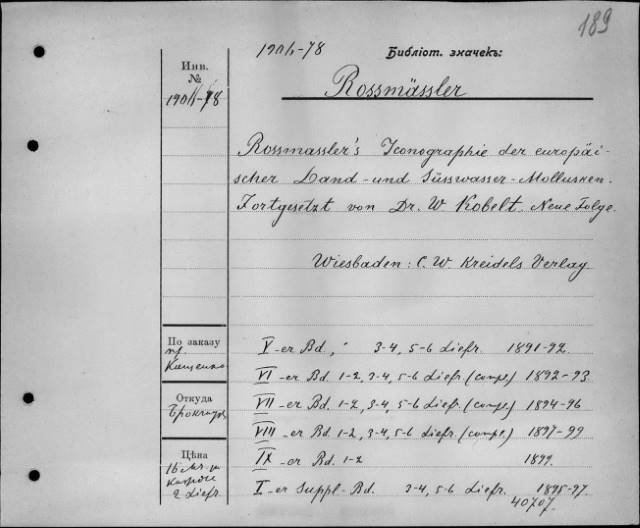 189
1906-78 Библіот. значекъ:
Инв.
№
1906-78
Rossmässler
Rossmassler's Iconographie der europäi-
scher Land- und Süsswasser-Mollusken.
Fortgesetzt von Dr. W Kobelt. Neue Folge.
Wiesbaden: C. W. Kreidels Verlag.
По заказу
пр.
Кащенко
V-er Bd., 3-4, 5-6 Liefr. 1891-92.
VI-er Bd. 1-2, 3-4, 5-6 Liefr (compl.) 1892-93.
Откуда
VII-er Bd. 1-2, 3-4, 5-6 Liefr. (compl.) 1894-96
VIII-er Bd. 1-2, 3-4, 5-6 Liefr. (compl.) 1897-99
Цѣна
IX-er Bd. 1-2 1899.
2 Liefr.
I-er Suppl-Bd. 3-4, 5-6 Liefr. 1895-97.
40707.